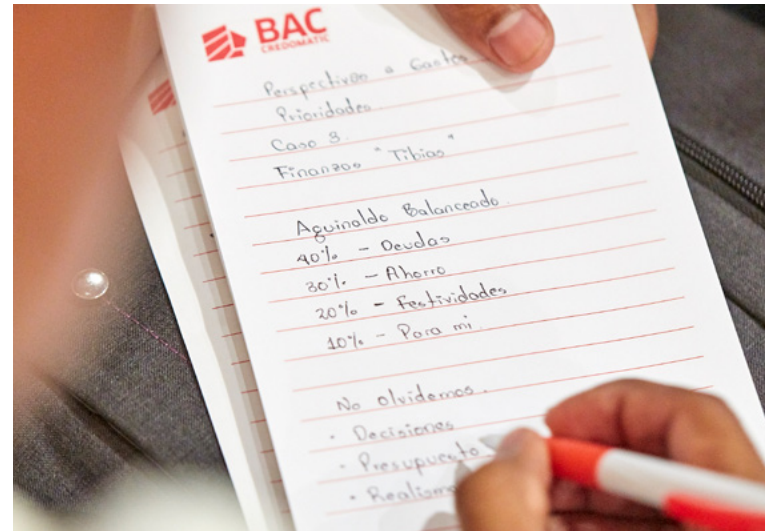 BAC
CREDOMATIC
Perspectivas a Gastos
Prioridades.
Caso 3.
Finanzas "Tibias"
Aguinaldo Balanceado.
40% - Deudas
30% - Ahorro
20% - Festividades
10% - Para mi.
No olvidemos.
· Decisiones
· Presupuesto
· Realismo